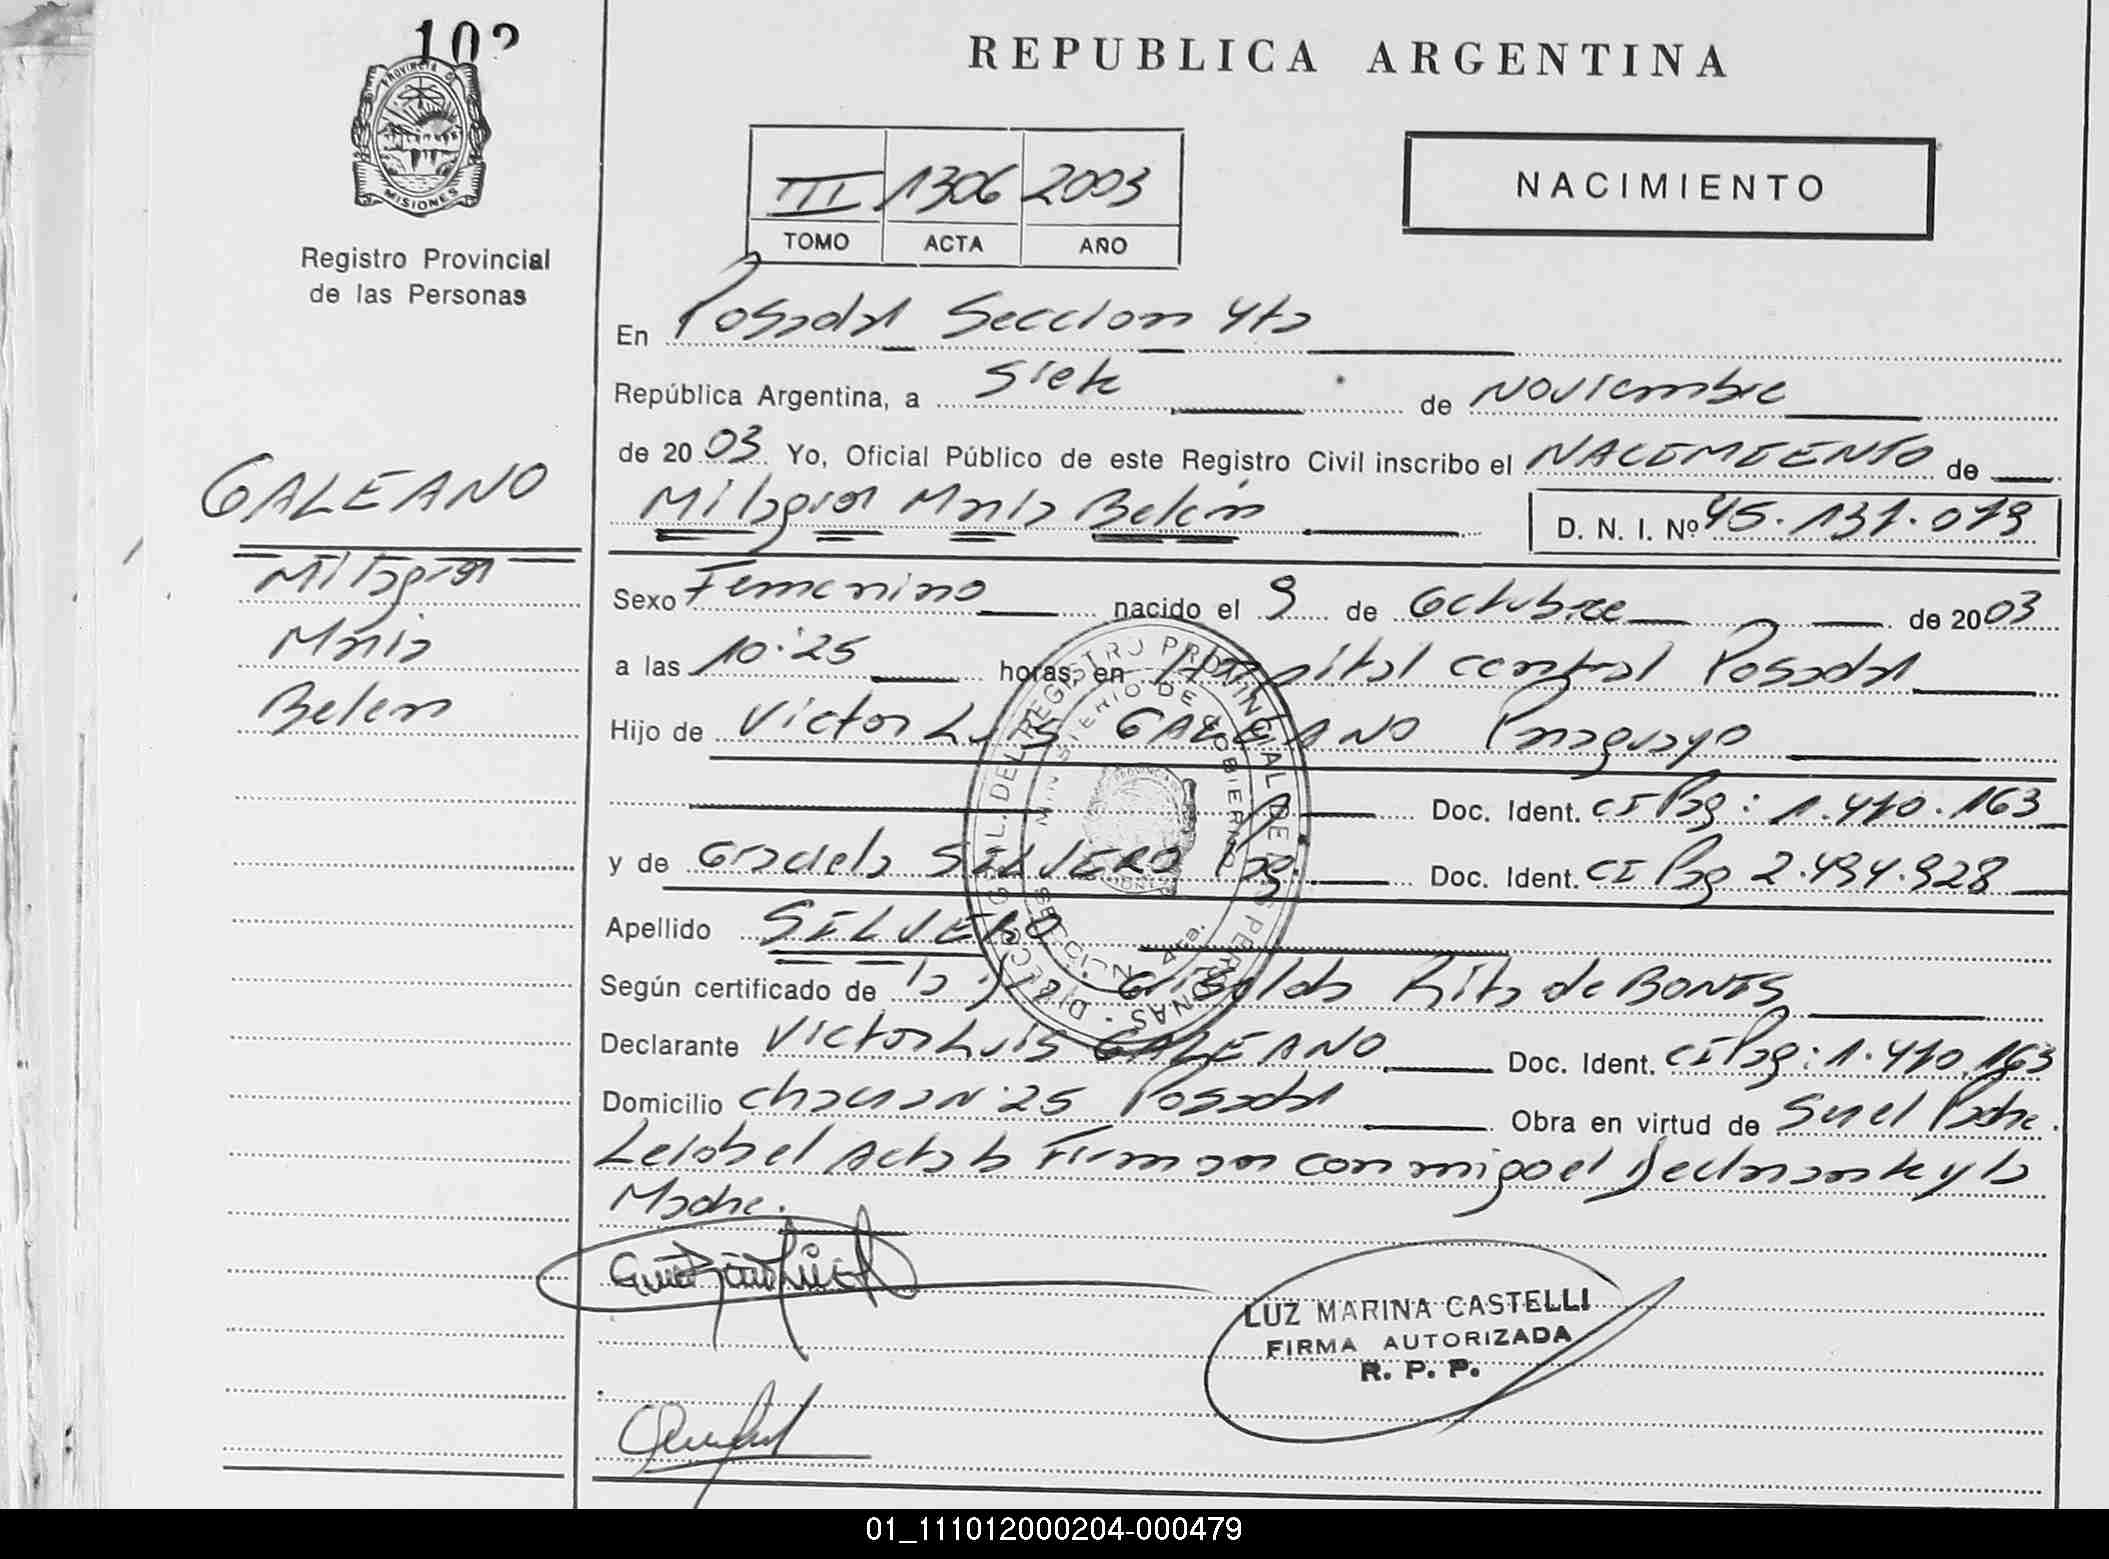 102
PROVINCIA DE
MISIONES
Registro Provincial
de las Personas
REPUBLICA ARGENTINA
III 1306 2003
TOMO ACTA AÑO
NACIMIENTO
En Posadas Seccion 4ta
República Argentina, a Siete de Noviembre
de 2003 Yo, Oficial Público de este Registro Civil inscribo el NACIMIENTO de
Milagros Maria Belén D. N. I. Nº 45.131.079
GALEANO
Milagros
Maria
Belen
Sexo Femenino nacido el 9 de Octubre de 2003
a las 10:25 horas, en Hospital central Posadas
Hijo de Victor Luis GALEANO Paraguayo
Doc. Ident. CI Pag: 1.410.163
y de Graciela SILVERO Pag. Doc. Ident. CI Pag 2.494.928
Apellido SILVERO
Según certificado de la Griselda Rita de BONIS
Declarante Victor Luis GALEANO Doc. Ident. CI Pag: 1.410.163
Domicilio 25 Posadas Obra en virtud de Ser el Padre.
Leida el Acta la Firman conmigo el Declarante y la
Madre.
DIRECC. GRAL. DEL REGISTRO PROVINCIAL DE LAS PERSONAS
MINISTERIO DE GOBIERNO
SECCION 4ta.
LUZ MARINA CASTELLI
FIRMA AUTORIZADA
R. P. P.
01_111012000204-000479